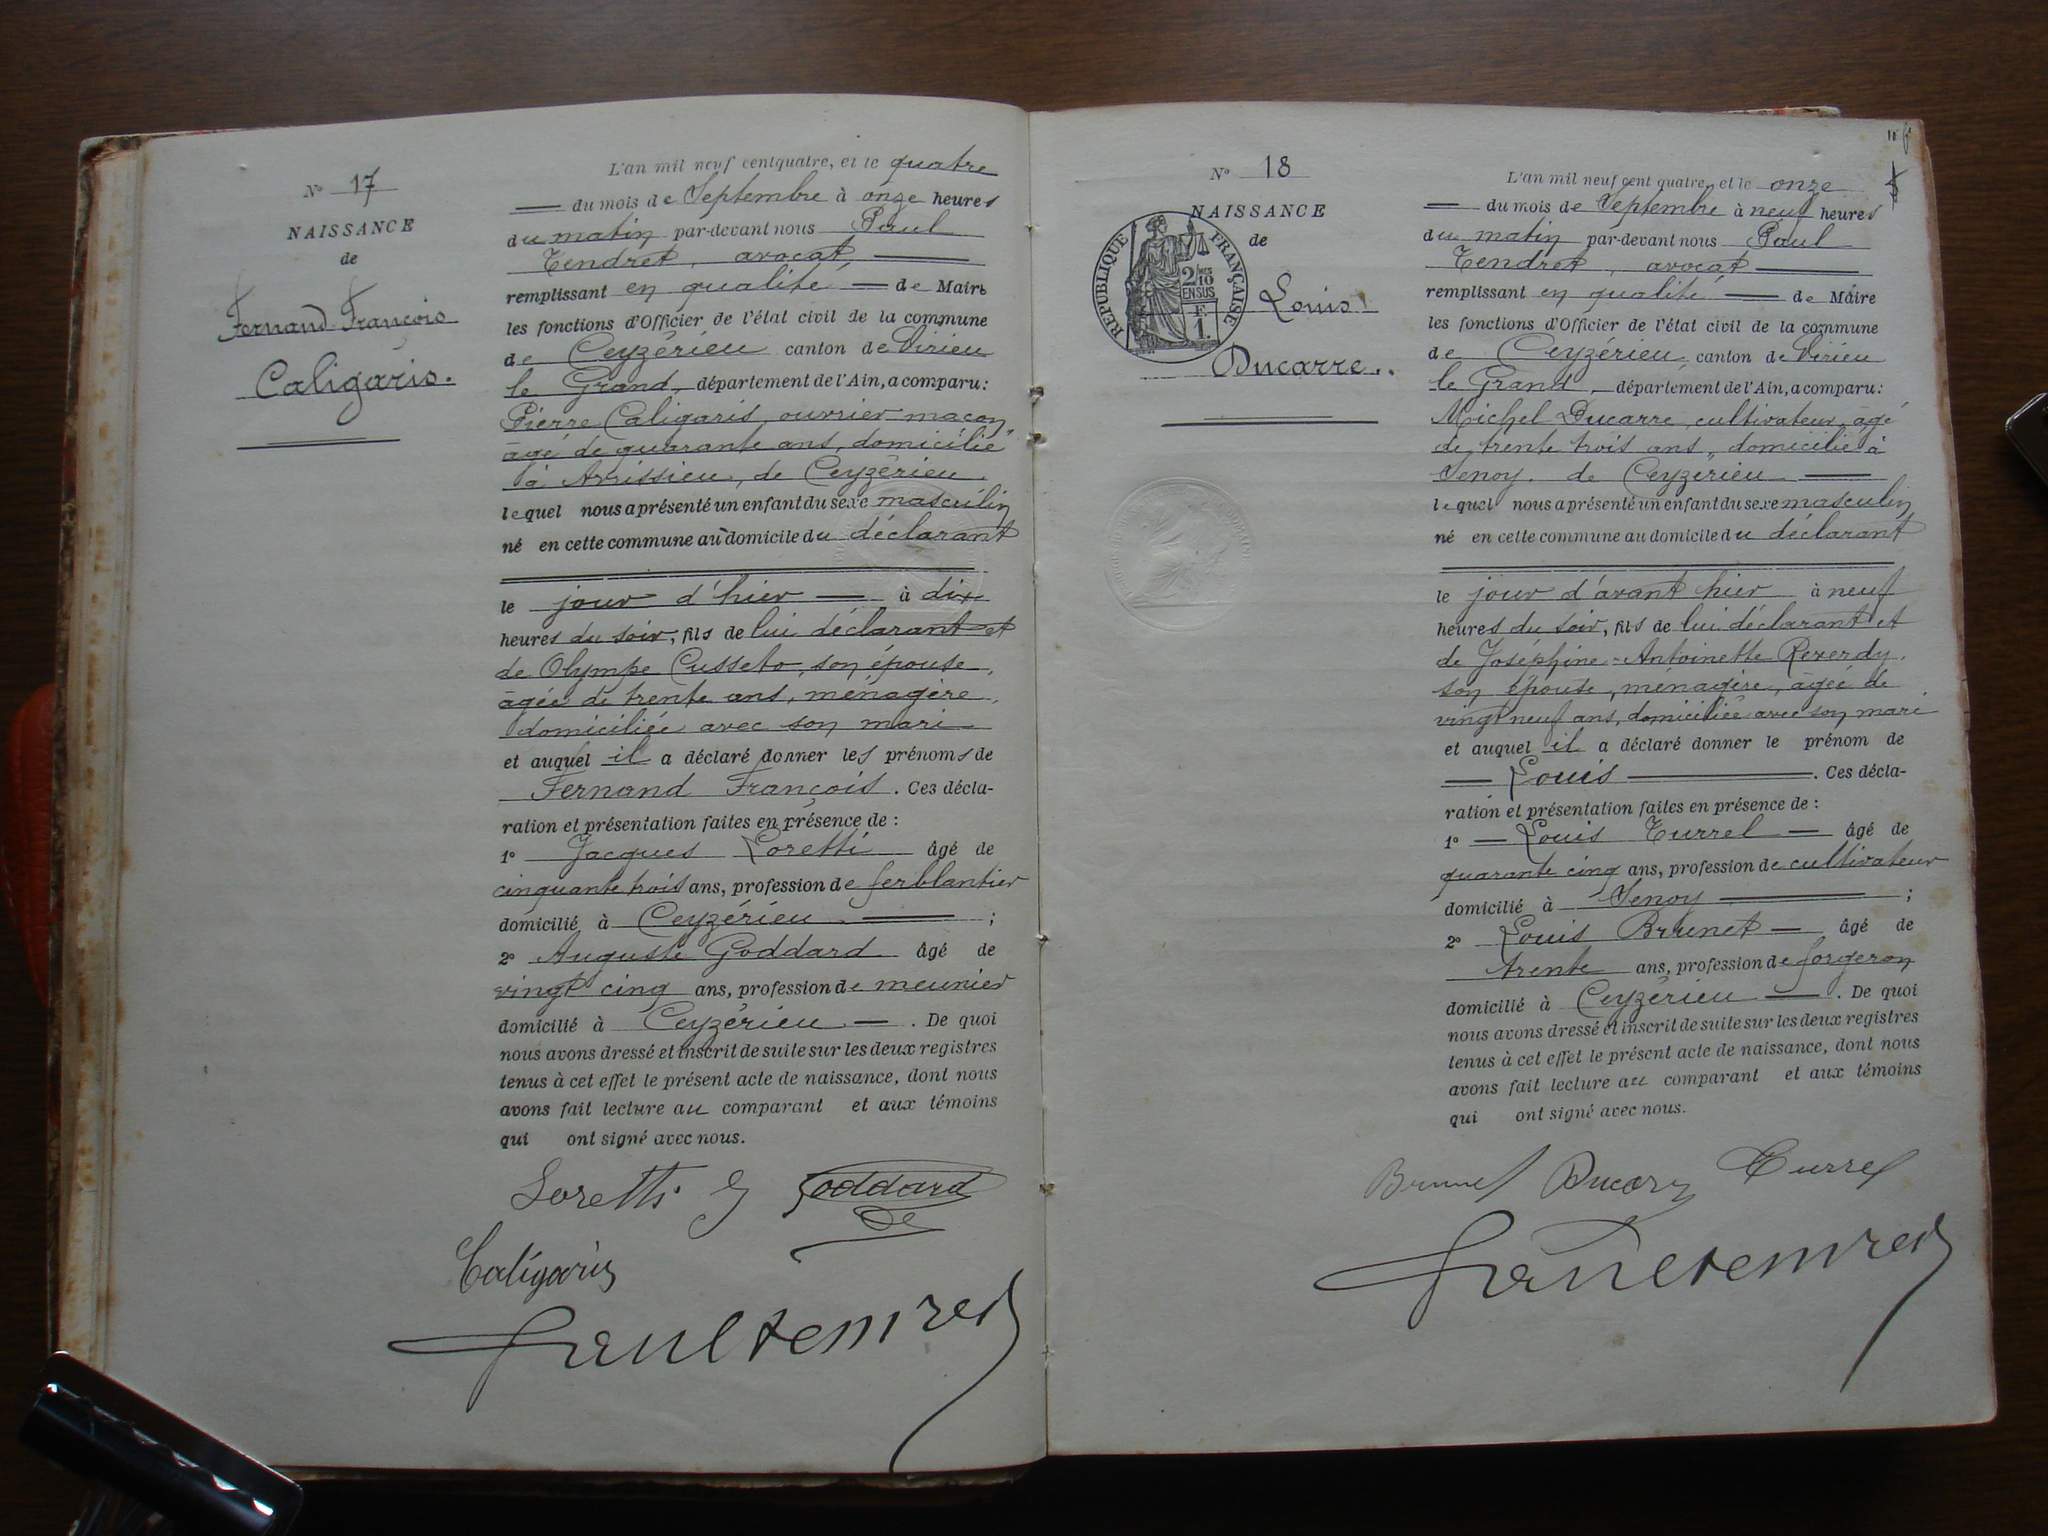 N° 17
NAISSANCE
de
Fernand François
Caligaris.
L'an mil neuf centquatre, et le quatre
du mois de Septembre à onze heures
du matin par-devant nous Paul
Tendret, avocat
remplissant en qualité de Maire
les fonctions d'Officier de l'état civil de la commune
de Ceyzérieu canton de Virieu
le Grand, département de l'Ain, a comparu:
Pierre Caligaris, ouvrier maçon,
âgé de quarante ans, domicilié
à Avrissieu, de Ceyzérieu.
lequel nous a présenté un enfant du sexe masculin
né en cette commune au domicile du déclarant
le jour d'hier à dix
heures du soir, fils de lui déclarant et
de Olympe Cusseto, son épouse,
âgée de trente ans, ménagère,
domiciliée avec son mari
et auquel il a déclaré donner les prénoms de
Fernand François. Ces décla-
ration et présentation faites en présence de :
1° Jacques Loretti âgé de
cinquante trois ans, profession de ferblantier
domicilié à Ceyzérieu ;
2° Auguste Goddard âgé de
vingt cinq ans, profession de meunier
domicilié à Ceyzérieu. De quoi
nous avons dressé et inscrit de suite sur les deux registres
tenus à cet effet le présent acte de naissance, dont nous
avons fait lecture au comparant et aux témoins
qui ont signé avec nous.
Loretti Goddard
Caligaris
N° 18
NAISSANCE
de
RÉPUBLIQUE FRANÇAISE
2/10 EN SUS
F.
1.
Louis
Ducarre.
L'an mil neuf cent quatre, et le onze
du mois de Septembre à neuf heures
du matin par-devant nous Paul
Tendret, avocat
remplissant en qualité de Maire
les fonctions d'Officier de l'état civil de la commune
de Ceyzérieu canton de Virieu
le Grand, département de l'Ain, a comparu:
Michel Ducarre, cultivateur, âgé
de trente trois ans, domicilié à
Senoy, de Ceyzerieu
lequel nous a présenté un enfant du sexe masculin
né en cette commune au domicile du déclarant
le jour d'avant hier à neuf
heures du soir, fils de lui déclarant et
de Joséphine-Antoinette Reverdy,
son épouse, ménagère, âgée de
vingt neuf ans, domiciliée avec son mari
et auquel il a déclaré donner le prénom de
Louis. Ces décla-
ration et présentation faites en présence de :
1° Louis Turrel âgé de
quarante cinq ans, profession de cultivateur
domicilié à Senoy ;
2° Louis Brunet âgé de
trente ans, profession de forgeron
domicilié à Ceyzérieu. De quoi
nous avons dressé et inscrit de suite sur les deux registres
tenus à cet effet le présent acte de naissance, dont nous
avons fait lecture au comparant et aux témoins
qui ont signé avec nous.
Brunet Ducarre Turrel